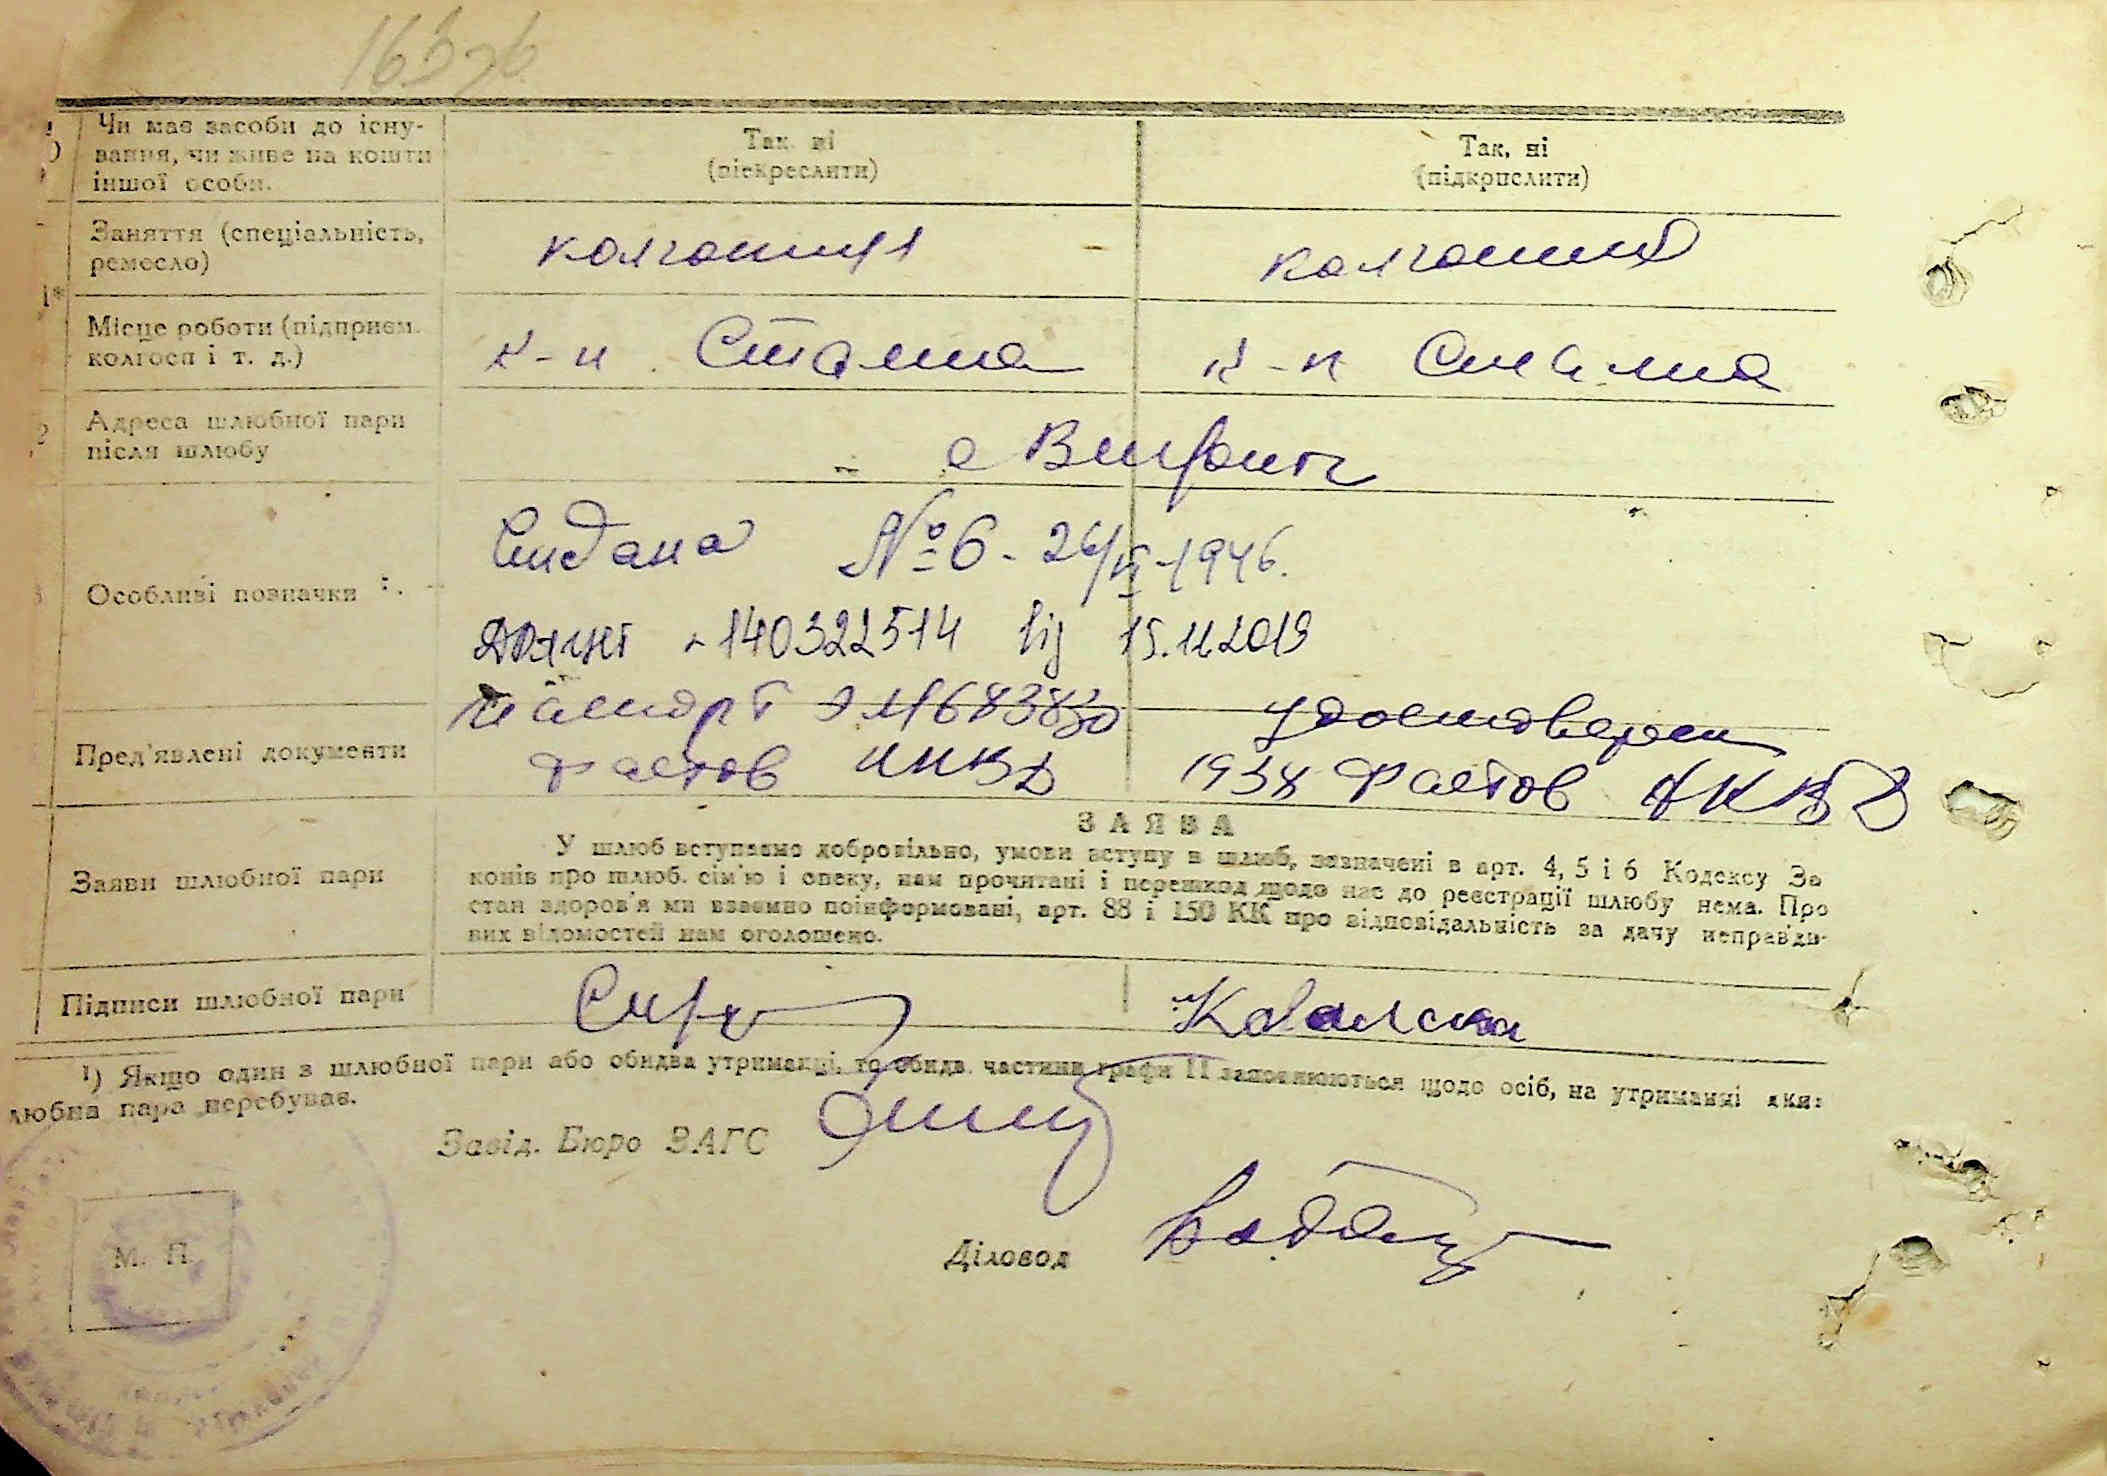 Чи має засоби до існу-
вання, чи живе на кошти
іншої особи.
Так, ні
(підкреслити)
Так, ні
(підкрислити)
Заняття (спеціальність,
ремесло)
колгоспниця
колгоспник
Місце роботи (підприєм.
колгосп і т. д.)
к-п Сталіна
к-п Сталіна
Адреса шлюбної пари
після шлюбу
с
Особливі позначки
Видана №6 - 1946.
140322514 від 15.11.2019
Пред'явлені документи
паспорт 683830
Фастов НКВД
удостоверен
1938 Фастов НКВД
Заяви шлюбної пари
ЗАЯВА
У шлюб вступаємо добровільно, умови вступу в шлюб, зазначені в арт. 4, 5 і 6 Кодексу За
конів про шлюб. сім'ю і опеку, нам прочитані і перешкод щодо нас до реєстрації шлюбу нема. Про
стан здоров'я ми взаємно поінформовані, арт. 88 і 150 КК про відповідальність за дачу неправди-
вих відомостей нам оголошено.
Підписи шлюбної пари
¹) Якщо один з шлюбної пари або обидва утриманці, то обидві частини графи 11 заповнюються щодо осіб, на утриманні яких
любна пара перебуває.
Завід. Бюро ЗАГС
М. П.
Діловод